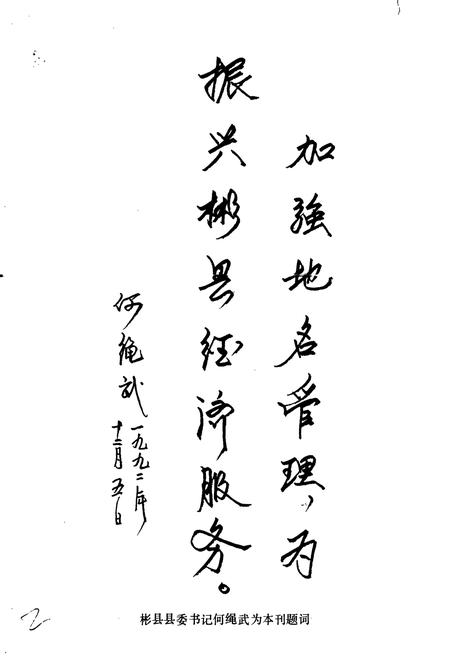 加强地名管理，为
振兴彬县经济服务。
何绳武
一九九二年
十二月五日
彬县县委书记何绳武为本刊题词